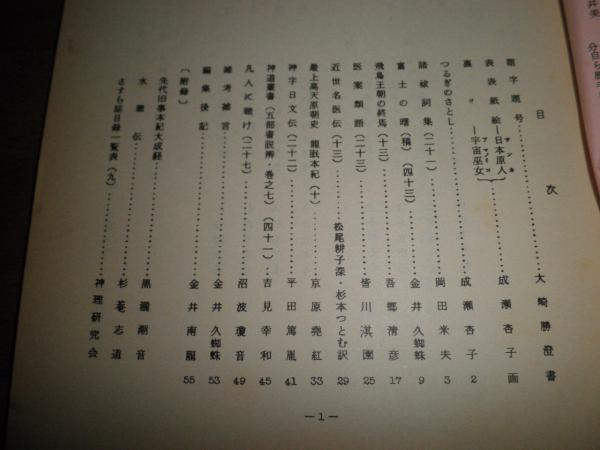 目次
題字題号……………大崎勝澄書
表表紙絵―日本原人
サンカ
―宇宙巫女
アマミコ
成瀬杏子画
裏〃……………成瀬杏子 2
つるぎのさとし……………岡田米夫 3
諸祓詞集(二十一)……………金井久蜘蛛 9
富士の曙(積)(四十三)……………吾郷清彦 17
飛鳥王朝の終焉(十三)
医案類語(二十三)……………皆川淇園 25
近世名医伝(十三)……………松尾耕子深・杉本つとむ訳 29
最上高天原朝史 龍眠本紀(十)……………京原堯紅 33
神字日文伝(二十二)……………平田篤胤 41
神道叢書(五部書説弁・巻之七)(四十一)……………吉見幸和 45
凡人に聴け(二十七)……………沼波瓊音 49
補考補言……………金井久蜘蛛 53
編集後記……………金井南龍 55
〔附録〕
先代旧事本紀大成経……………黒瀧潮音
水穂伝……………杉菴志道
さすら誌目録一覧表(九)……………神理研究会
―1―
井夫